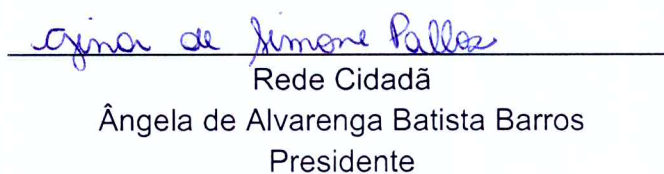 Gina de Simone Pallos
Rede Cidadã
Ângela de Alvarenga Batista Barros
Presidente